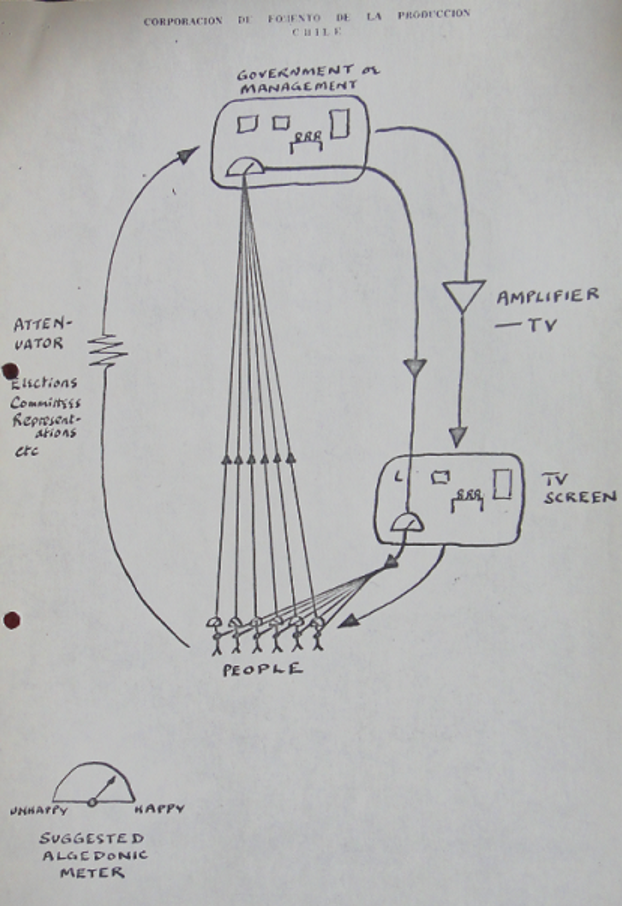 CORPORACION DE FOMENTO DE LA PRODUCCION
CHILE
GOVERNMENT or
MANAGEMENT
AMPLIFIER
— TV
ATTEN-
UATOR
Elections
Committees
Represent-
ations
etc
TV
SCREEN
PEOPLE
UNHAPPY HAPPY
SUGGESTED
ALGEDONIC
METER